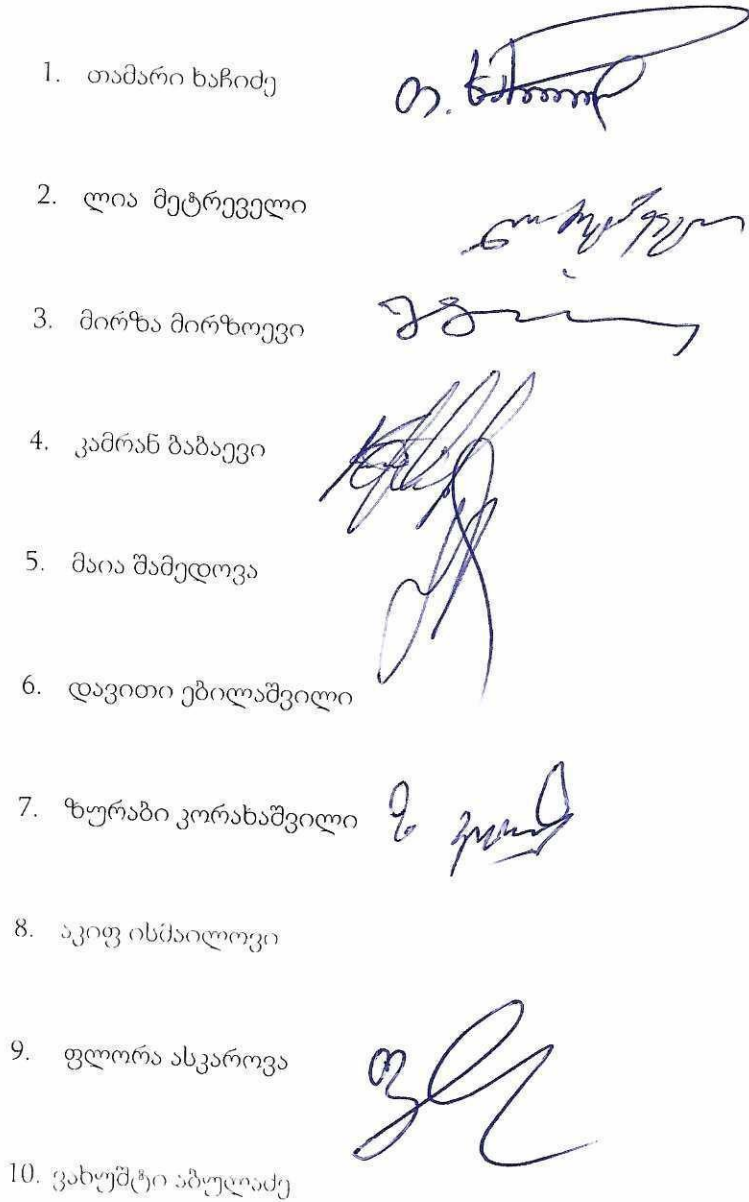 1. თამარი ხაჩიძე
2. ლია მეტრეველი
3. მირზა მირზოევი
4. კამრან ბაბაევი
5. მაია შამედოვა
6. დავითი ებილაშვილი
7. ზურაბი კორახაშვილი
8. აკიფ ისმაილოვი
9. ფლორა ასკაროვა
10. ვახუშტი აბულაძე